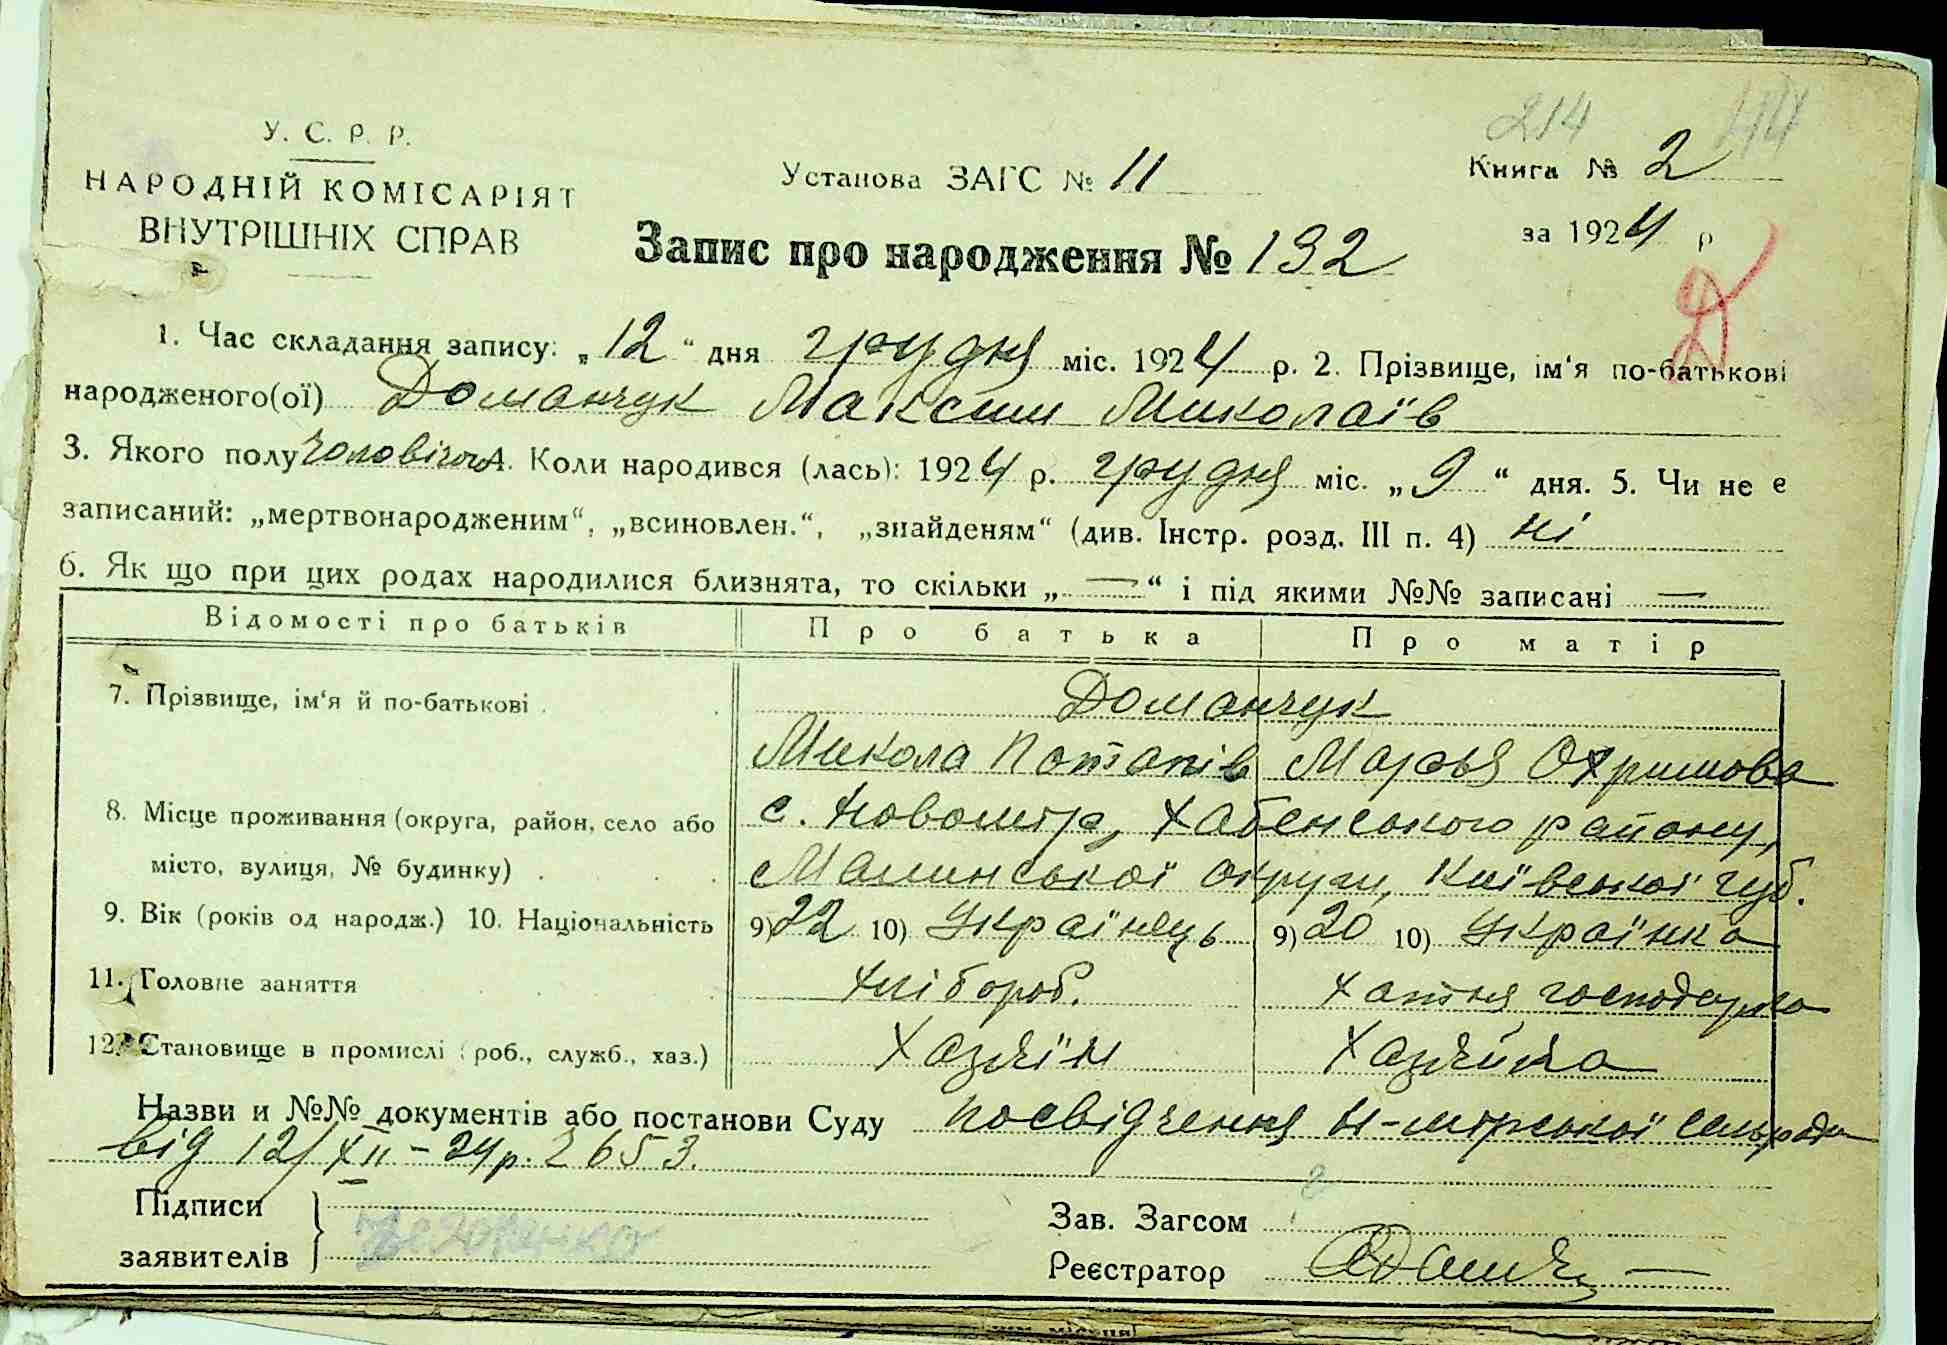 214
У. С. Р. Р.
НАРОДНІЙ КОМІСАРІЯТ
ВНУТРІШНІХ СПРАВ
Установа ЗАГС № 11
Книга № 2
за 1924 р
Запис про народження № 132
1. Час складання запису: „12“ дня грудня міс. 1924 р. 2. Прізвище, ім'я по-батькові
народженого(ої) Доманчук Максим Миколаїв
3. Якого полу чоловічого 4. Коли народився (лась): 1924 р. грудня міс. „9“ дня. 5. Чи не є
записаний: „мертвонародженим“, „всиновлен.“, „знайденям“ (див. Інстр. розд. III п. 4) ні
6. Як що при цих родах народилися близнята, то скільки „—“ і під якими №№ записані —
Відомості про батьків Про батька Про матір
7. Прізвище, ім'я й по-батькові Доманчук
Микола Потапів Марья Охримова
8. Місце проживання (округа, район, село або с. Новомір, Хабенського району,
місто, вулиця, № будинку) Малинської округи, Київської губ.
9. Вік (років од народж.) 10. Національність 9) 22 10) Українець 9) 20 10) Українка
11. Головне заняття Хлібороб. Хатня господарка
12. Становище в промислі (роб., служб., хаз.) Хазяїн Хазяйка
Назви и №№ документів або постанови Суду посвідчення Н-мірської сельради
від 12/XII-24 р. 2653.
Підписи
заявителів
Зав. Загсом
Реєстратор